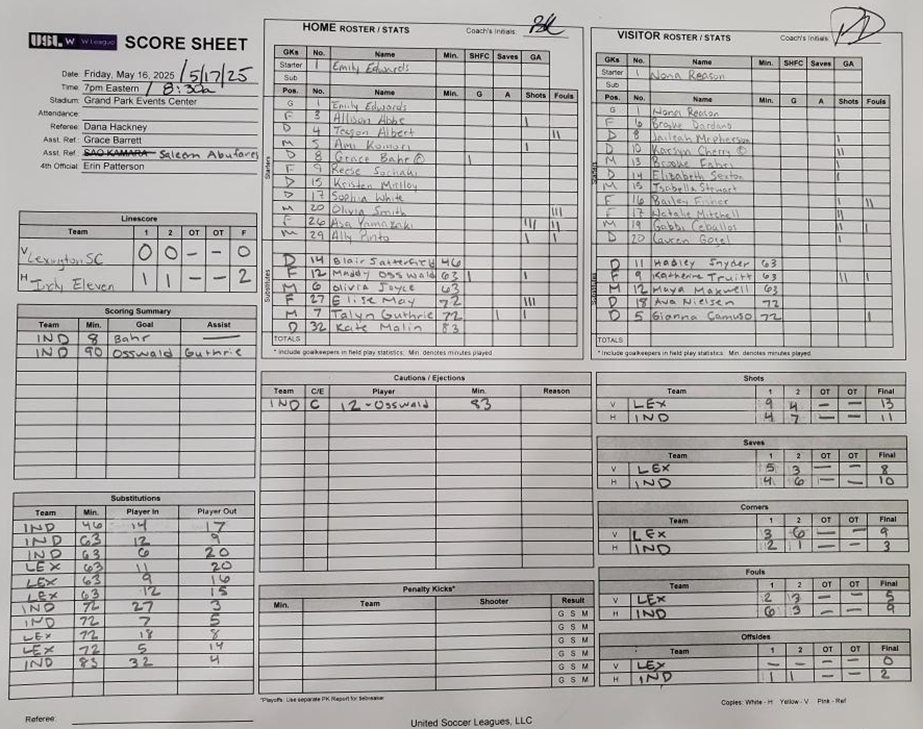 USL W W League SCORE SHEET
Date: Friday, May 16, 2025 / 5/17/25
Time: 7pm Eastern / 8:30a
Stadium: Grand Park Events Center
Attendance:
Referee: Dana Hackney
Asst. Ref.: Grace Barrett
Asst. Ref.: SAO KAMARA Saleem Abutares
4th Official: Erin Patterson
Linescore
Team 1 2 OT OT F
V Lexington SC 0 0 — — 0
H Indy Eleven 1 1 — — 2
Scoring Summary
Team Min. Goal Assist
IND 8 Bahr —
IND 90 Osswald Guthrie
Substitutions
Team Min. Player In Player Out
IND 46 14 17
IND 63 12 9
IND 63 6 20
LEX 63 11 20
LEX 63 9 16
LEX 63 12 15
IND 72 27 3
IND 72 7 5
LEX 72 18 8
LEX 72 5 14
IND 83 32 4
Referee:
HOME ROSTER / STATS Coach's Initials:
GKs No. Name Min. SHFC Saves GA
Starter 1 Emily Edwards
Sub
Pos. No. Name Min. G A Shots Fouls
Starters
G 1 Emily Edwards
F 3 Allison Abbe
D 4 Teagan Albert
M 5 Ami Komori
D 8 Grace Bahr ©
F 9 Reese Sochacki
D 15 Kristen Molloy
D 17 Sophia White
M 20 Olivia Smith
F 26 Asa Yamazaki
M 29 Ally Pinto
Substitutes
D 14 Blair Satterfield 46
F 12 Maddy Osswald 63
M 6 Olivia Joyce 63
F 27 Elise May 72
M 7 Talyn Guthrie 72
D 32 Kate Malin 83
TOTALS
* Include goalkeepers in field play statistics. Min. denotes minutes played.
VISITOR ROSTER / STATS Coach's Initials:
GKs No. Name Min. SHFC Saves GA
Starter 1 Nona Reason
Sub
Pos. No. Name Min. G A Shots Fouls
Starters
G 1 Nona Reason
F 6 Brooke Dardano
D 8 Jaileah McPherson
D 10 Karsyn Cherry ©
M 13 Brooke Fabri
D 14 Elizabeth Sexton
M 15 Isabella Stewart
F 16 Bailey Fisher
F 17 Natalie Mitchell
M 19 Gabbi Ceballos
D 20 Lauren Gogel
Substitutes
D 11 Hadley Snyder 63
F 9 Katherine Truitt 63
M 12 Maya Maxwell 63
D 18 Ava Nielsen 72
D 5 Gianna Camuso 72
TOTALS
* Include goalkeepers in field play statistics. Min. denotes minutes played.
Cautions / Ejections
Team C/E Player Min. Reason
IND C 12-Osswald 83
Penalty Kicks*
Min. Team Shooter Result
G S M
G S M
G S M
G S M
G S M
G S M
*Playoffs: Use separate PK Report for tiebreaker
Shots
Team 1 2 OT OT Final
V LEX 9 4 — — 13
H IND 4 7 — — 11
Saves
Team 1 2 OT OT Final
V LEX 5 3 — — 8
H IND 4 6 — — 10
Corners
Team 1 2 OT OT Final
V LEX 3 6 — — 9
H IND 2 1 — — 3
Fouls
Team 1 2 OT OT Final
V LEX 2 3 — — 5
H IND 6 3 — — 9
Offsides
Team 1 2 OT OT Final
V LEX - - — — 0
H IND 1 1 — — 2
Copies: White - H Yellow - V Pink - Ref
United Soccer Leagues, LLC